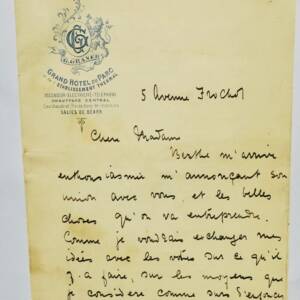 GG
G. GRANER
GRAND HOTEL DU PARC
ET ETABLISSEMENT THERMAL
ASCENSEUR-ELECTRICITÉ-TÉLÉPHONE
CHAUFFAGE CENTRAL
SALIES DE BÉARN
5 Avenue Frochot
Chere Madame
Berthe m'arrive
enthousiasmée m'annonçant son
union avec vous, et les belles
choses qu'on va entreprendre.
Comme je voudrais echanger mes
idées avec les votres sur ce qu'il
y a faire, sur les moyens que
je considere comme surs